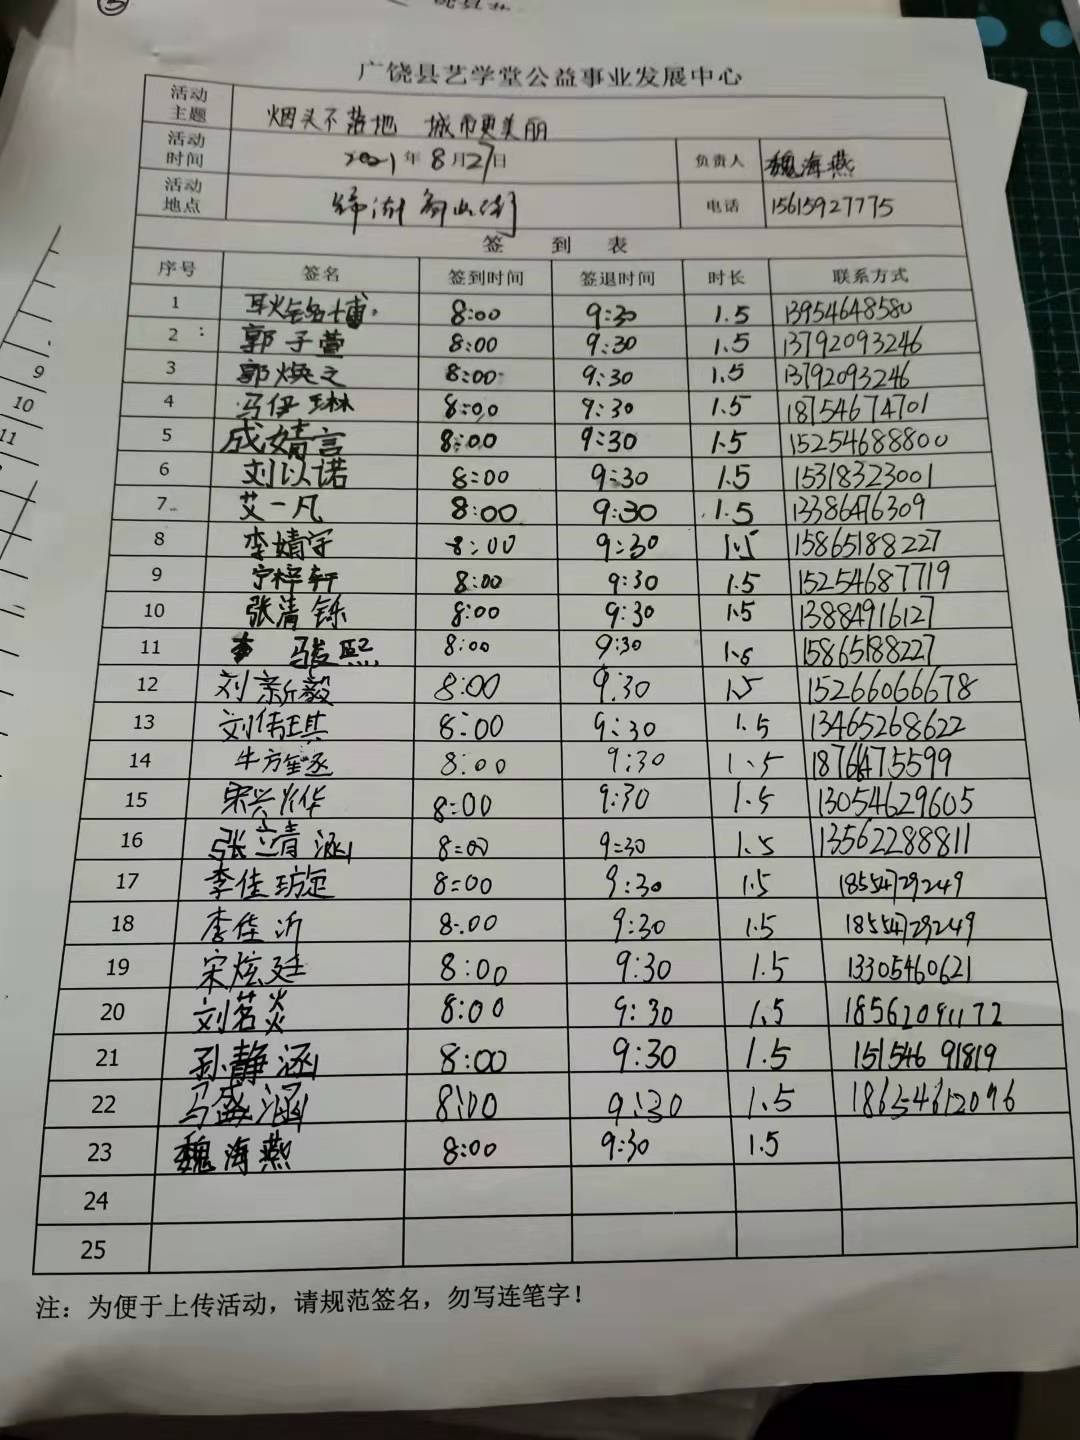 广饶县艺学堂公益事业发展中心
活动主题 烟头不落地 城市更美丽
活动时间 2021年8月27日 负责人 魏海燕
活动地点 电话 15615927775
签到表
序号 签名 签到时间 签退时间 时长 联系方式
1 8:00 9:30 1.5 13954648580
2 郭子萱 8:00 9:30 1.5 13792093246
3 郭焕之 8:00 9:30 1.5 13792093246
4 马伊琳 8:00 9:30 1.5 18754674701
5 成婧言 8:00 9:30 1.5 15254688800
6 刘以诺 8:00 9:30 1.5 15318323001
7 艾一凡 8:00 9:30 1.5 13386476309
8 李婧宇 8:00 9:30 1.5 15865188227
9 宁梓轩 8:00 9:30 1.5 15254687719
10 张清铄 8:00 9:30 1.5 13884916127
11 李骏熙 8:00 9:30 1.5 15865188227
12 刘新毅 8:00 9:30 1.5 15266066678
13 刘倩琪 8:00 9:30 1.5 13465268622
14 8:00 9:30 1.5 18764675599
15 8:00 9:30 1.5 13054629605
16 张清涵 8:00 9:30 1.5 13562288811
17 李佳璇 8:00 9:30 1.5 18554729249
18 李佳沂 8:00 9:30 1.5 18554729249
19 宋炫廷 8:00 9:30 1.5 13305460621
20 刘茗炎 8:00 9:30 1.5 18562091172
21 孙静涵 8:00 9:30 1.5 15154691819
22 马盛涵 8:00 9:30 1.5 18654612096
23 魏海燕 8:00 9:30 1.5
24
25
注：为便于上传活动，请规范签名，勿写连笔字！
9
10
11